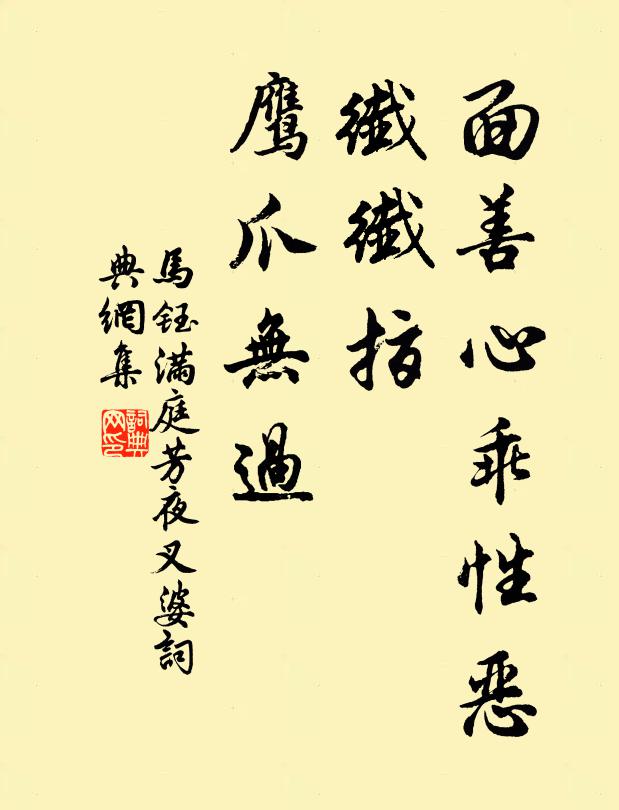 面善心乖性恶
纖纖指
鹰爪無過
馬鈺满庭芳夜叉婆詞
典網集
詞典網印